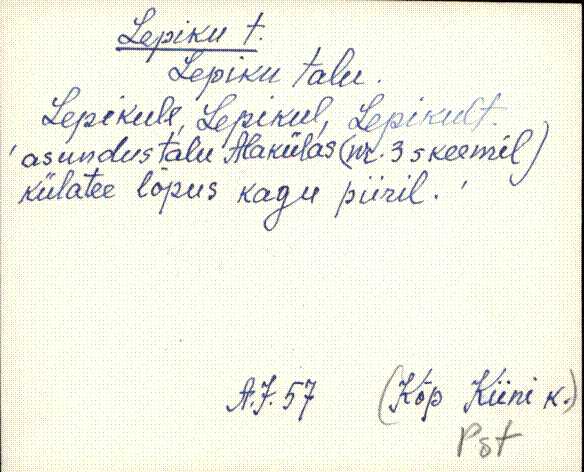 Lepiku t.
Lepiku talu.
Lepikule, Lepikul, Lepikult.
'asundustalu Alakülas (nr. 3 skeemil)
külatee lõpus kagu piiril.'
A.J. 57 (Kõp Kiini k.)
Pst